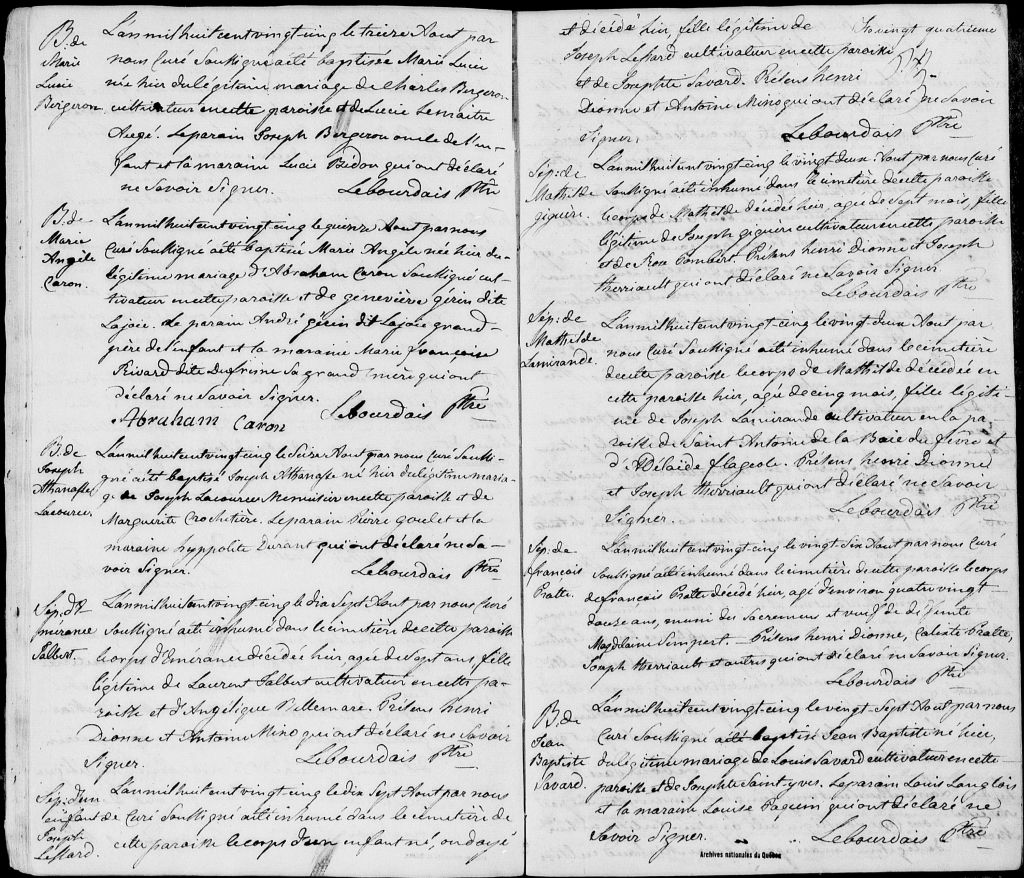 B. de
Marie
Lucie
Bergeron.
L'an mil huit cent vingt-cinq le treize Aout par
nous Curé Soussigné a été baptisée Marie Lucie
née hier du légitime mariage de Charles Bergeron
cultivateur en cette paroisse et de Lucie Lemaitre
Augé. Le parain Joseph Bergeron oncle de l'en-
fant et la maraine Lucie qui ont déclaré
ne Savoir Signer. Lebourdais Ptre
B. de
Marie
Angèle
Caron.
L'an mil huit cent vingt-cinq le quinze Aout par nous
Curé Soussigné a été baptisée Marie Angèle née hier du
légitime mariage d'Abraham Caron Soussigné cul-
tivateur en cette paroisse et de geneviève gérin dite
Lajoie. Le parain André gérin dit Lajoie grand-
père de l'enfant et la maraine Marie françoise
Rivard dite Dufresne Sa grand mère qui ont
déclaré ne Savoir Signer.
Abraham Caron Lebourdais Ptre
B. de
Joseph
Athanase
Lacourse
L'an mil huit cent vingt-cinq le Seize Aout par nous Curé Soussi-
gné a été baptisé Joseph Athanase né hier du légitime maria-
ge de Joseph Lacourse Menuisier en cette paroisse et de
Marguerite Crochetière. Le parain Pierre goulet et la
maraine hyppolite Durant qui ont déclaré ne Sa-
voir Signer. Lebourdais Ptre
Sép. d'E-
mérance
Galbert.
L'an mil huit cent vingt-cinq le dix Sept Aout par nous Curé
Soussigné a été inhumé dans le cimetière de cette paroisse
le corps d'Emérance décédée hier, agée de Sept ans, fille
légitime de Laurent Galbert cultivateur en cette pa-
roisse et d'Angélique Bellemare. Présens henri
Dionne et Antoine Mino qui ont déclaré ne Savoir
Signer. Lebourdais Ptre
Sép: d'un
enfant de
Joseph
Lessard.
L'an mil huit cent vingt-cinq le dix Sept Aout par nous
Curé Soussigné a été inhumé dans le cimetière de
cette paroisse le corps d'un enfant né, ondoyé
et décédé hier, fille légitime de
Joseph Lessard cultivateur en cette paroisse
et de Josephte Savard. Présens henri
Dionne et Antoine Mino qui ont déclaré ne Savoir
Signer. Lebourdais Ptre
vingt quatrieme
Sép: de
Mathilde
giguère.
L'an mil huit cent vingt-cinq le vingt deux Aout par nous Curé
Soussigné a été inhumé dans le cimetière de cette paroisse
le corps de Mathilde décédé hier, agée de Sept mois, fille
légitime de Joseph giguère cultivateur en cette paroisse
et de Rose Présens henri Dionne et Joseph
therriault qui ont déclaré ne Savoir Signer.
Lebourdais Ptre
Sép: de
Mathilde
Lamirande.
L'an mil huit cent vingt-cinq le vingt-deux Aout par
nous Curé Soussigné a été inhumé dans le cimetière
de cette paroisse le corps de Mathilde décédée en
cette paroisse hier, agée de cinq mois, fille légiti-
me de Joseph Lamirande cultivateur en la pa-
roisse de Saint Antoine de la Baie du febvre et
d'Adélaide flageole. Présens henri Dionne
et Joseph therriault qui ont déclaré ne Savoir
Signer. Lebourdais Ptre
Sép: de
françois
Pratte.
L'an mil huit cent vingt-cinq le vingt-Six Aout par nous Curé
Soussigné a été inhumé dans le cimetière de cette paroisse le corps
de françois Pratte décédé hier, agé d'environ quatre vingt-
douze ans, muni des Sacremens et veuf de défunte
Magdelaine Sempert. — Présens henri Dionne, Calixte Pratte,
Joseph therriault et autres qui ont déclaré ne Savoir Signer.
Lebourdais Ptre
B. de
Jean
Baptiste
Savard.
L'an mil huit cent vingt-cinq le vingt-Sept Aout par nous
Curé Soussigné a été baptisé Jean Baptiste né hier,
du légitime mariage de Louis Savard cultivateur en cette
paroisse et de Josephte Saint-yves. Le parain Louis Langlois
et la maraine Louise Paquin qui ont déclaré ne
Savoir Signer. Lebourdais Ptre
Archives nationales du Québec